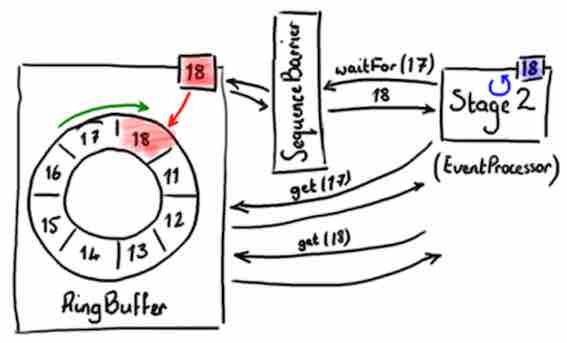 18
17
18
16
11
15
12
14
13
RingBuffer
SequenceBarrier
waitFor(17)
18
18
Stage 2
(EventProcessor)
get(17)
get(18)